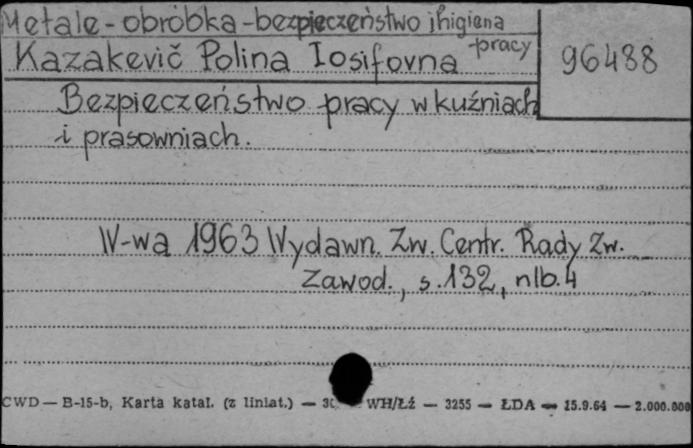 Metale - obróbka - bezpieczeństwo i higiena pracy
Kazakevič Polina Iosifovna
96488
Bezpieczeństwo pracy w kuźniach
i prasowniach.
W-wa 1963 Wydawn. Zw. Centr. Rady Zw.
Zawod., s. 132, nlb. 4
CWD — B-15-b, Karta katal. (z liniat.) — WH/Łź — 3255 — ŁDA — 15.9.64 — 2.000.000